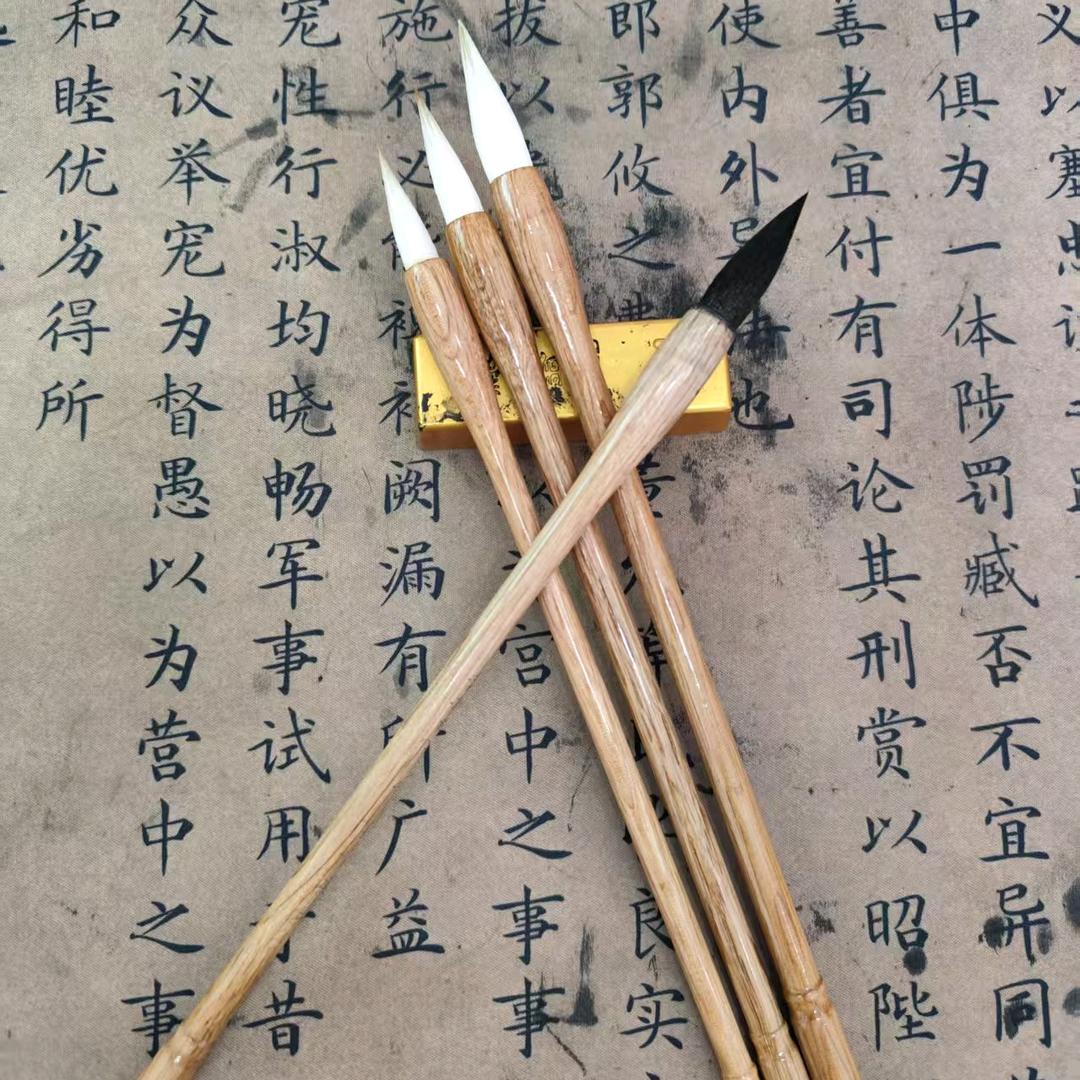 义以塞忠
中俱为一体陟罚臧否不宜异同
善者宜付有司论其刑赏以昭陛
使内外异法也
郎郭攸之 良实
拔以 宫中之事事
施行必 阙漏有所广益
宠性行淑均晓畅军事试用于昔
众议举宠为督愚以为营中之事
和睦优劣得所